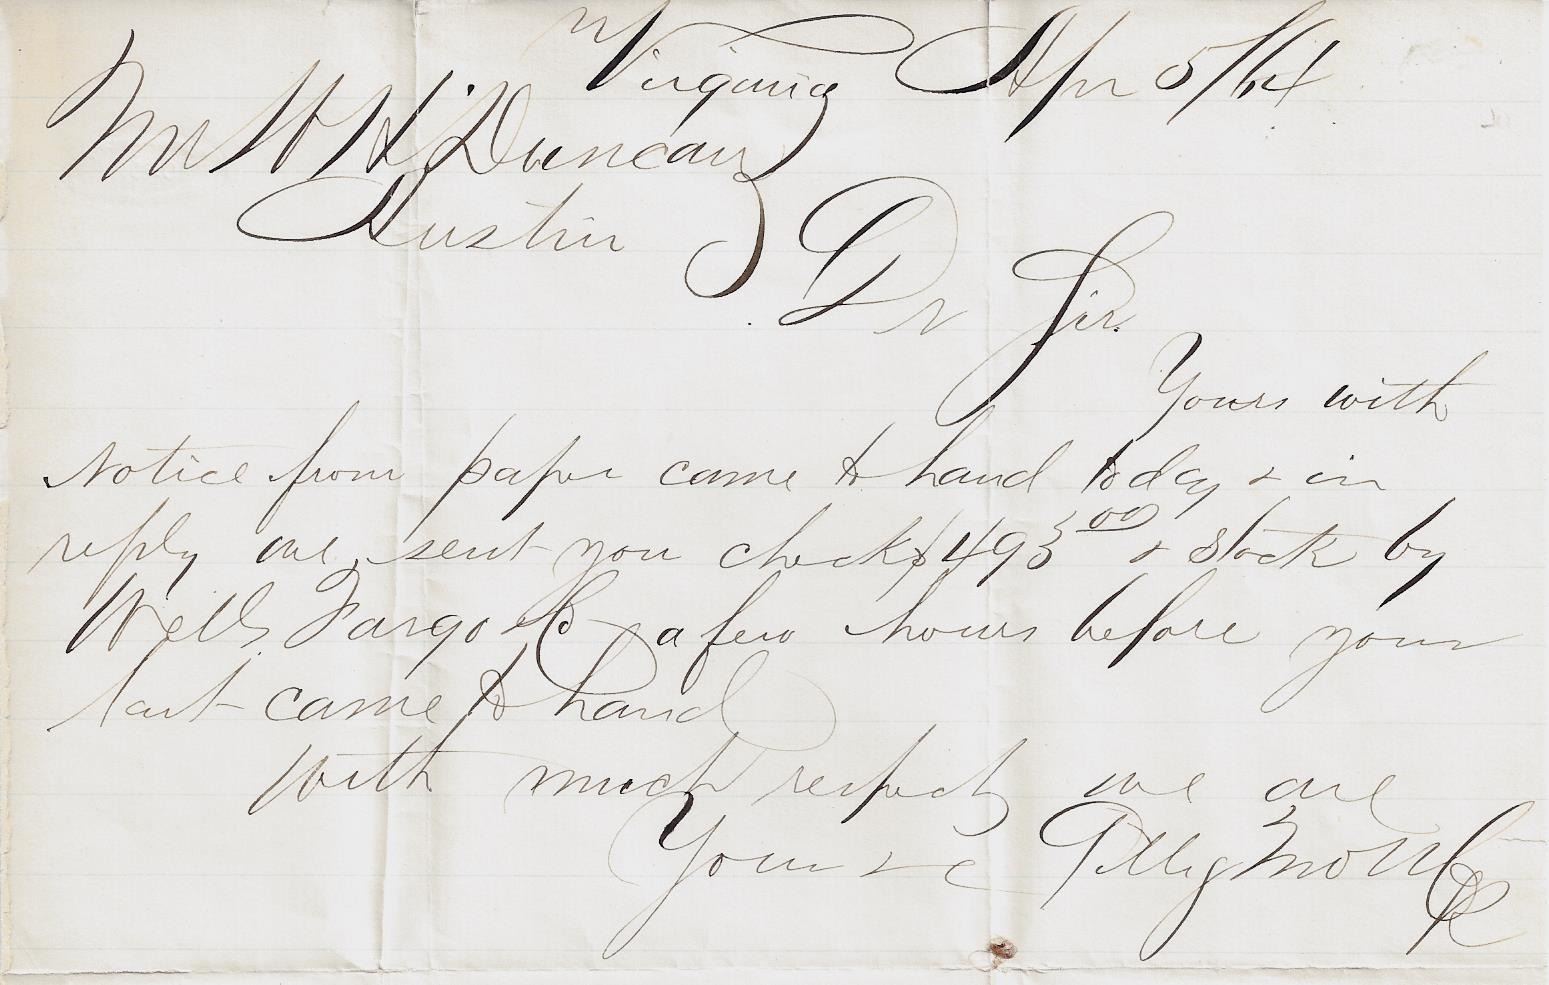 Virginia Apr 5/64
Mr W H Duncan
Austin
Dr Sir.
Yours with
notice from paper came to hand today & in
reply we sent you check $493.00 & stock by
Wells Fargo & Co a few hours before your
last came to hand
With much respect we are
Yours &c